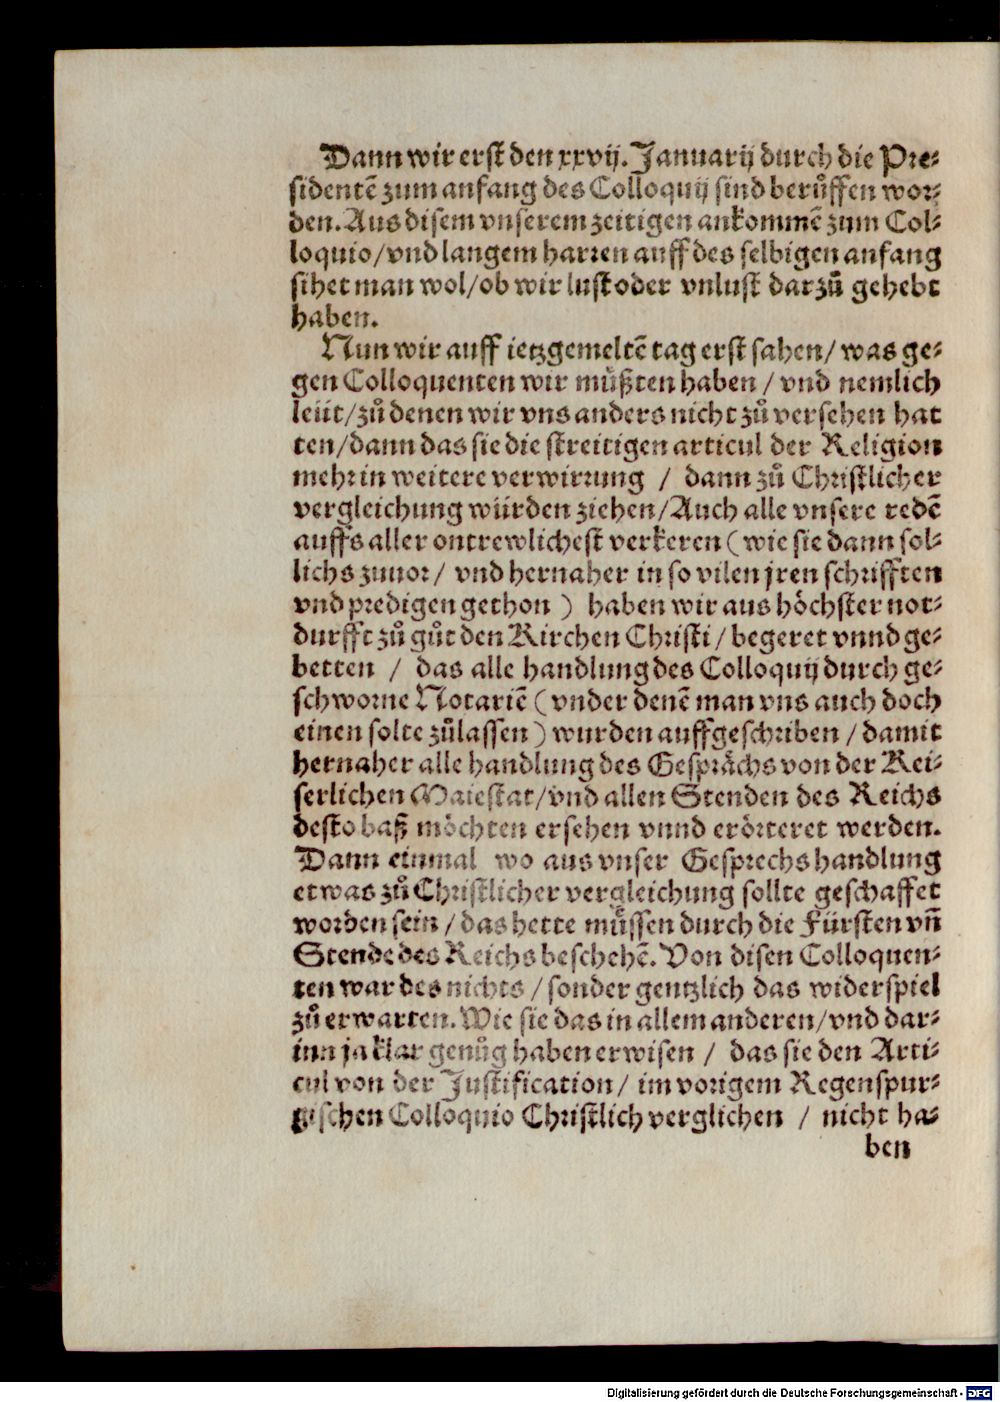 Dann wir erst den xxvij. Januarij durch die Pre⸗
sidentē zum anfang des Colloquij sind berůffen wor⸗
den. Aus disem vnserem zeitigen ankommē zum Col⸗
loquio/ vnd langem harren auff des selbigen anfang
sihet man wol/ ob wir lust oder vnlust darzů gehebt
haben.
Nun wir auff ietzgemeltē tag erst sahen/ was ge⸗
gen Colloquenten wir müßten haben / vnd nemlich
leüt/ zů denen wir vns anders nicht zů versehen hat
ten/ dann das sie die streitigen articul der Religion
mehr in weitere verwirrung / dann zů Christlicher
vergleichung würden ziehen/ Auch alle vnsere redē
auffs aller ontrewlichest verkeren ( wie sie dann sol⸗
lichs zuuor/ vnd hernaher in so vilen jren schrifften
vnd predigen gethon ) haben wir aus höchster not⸗
durfft zů gůt den Kirchen Christi / begeret vnnd ge⸗
betten / das alle handlung des Colloquij durch ge⸗
schworne Notariē ( vnder denē man vns auch doch
einen solte zůlassen ) wurden auffgeschriben / damit
hernaher alle handlung des Gesprächs von der Kei⸗
serlichen Maiestat/ vnd allen Stenden des Reichs
desto baß möchten ersehen vnnd erörteret werden.
Dann einmal wo aus vnser Gesprechs handlung
etwas zů Christlicher vergleichung sollte geschaffet
worden sein / das hette müssen durch die Fürsten vñ
Stende des Reichs beschehē. Von disen Colloquen⸗
ten war des nichts / sonder gentzlich das widerspiel
zů erwarten. Wie sie das in allem anderen/ vnd dar⸗
inn ja klar genůg haben erwisen / das sie den Arti⸗
cul von der Justification / im vorigem Regenspur⸗
gischen Colloquio Christlich verglichen / nicht ha⸗
ben
Digitalisierung gefördert durch die Deutsche Forschungsgemeinschaft - DFG